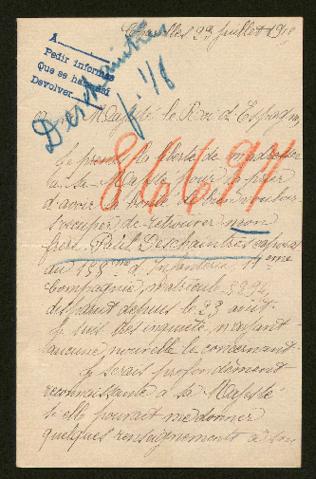 A
Pedir informes
Que se haga así
Devolver
Deschaintres
1/16
86694
Chasseles 29 juillet 1918
A sa Majesté le Roi d'Espagne,
Je prends la liberté de m'adresser
à sa Majesté pour le prier
d'avoir la bonté de bien vouloir
s'occuper de retrouver mon
frère Paul Deschaintres caporal
au 158ème d'Infanterie, 11ème
Compagnie, matricule
disparut depuis le 23 août.
Je suis très inquiète n'ayant
aucune nouvelle le concernant.
Je serais profondément
reconnaissante à sa Majesté
si elle pouvait me donner
quelques renseignements à son